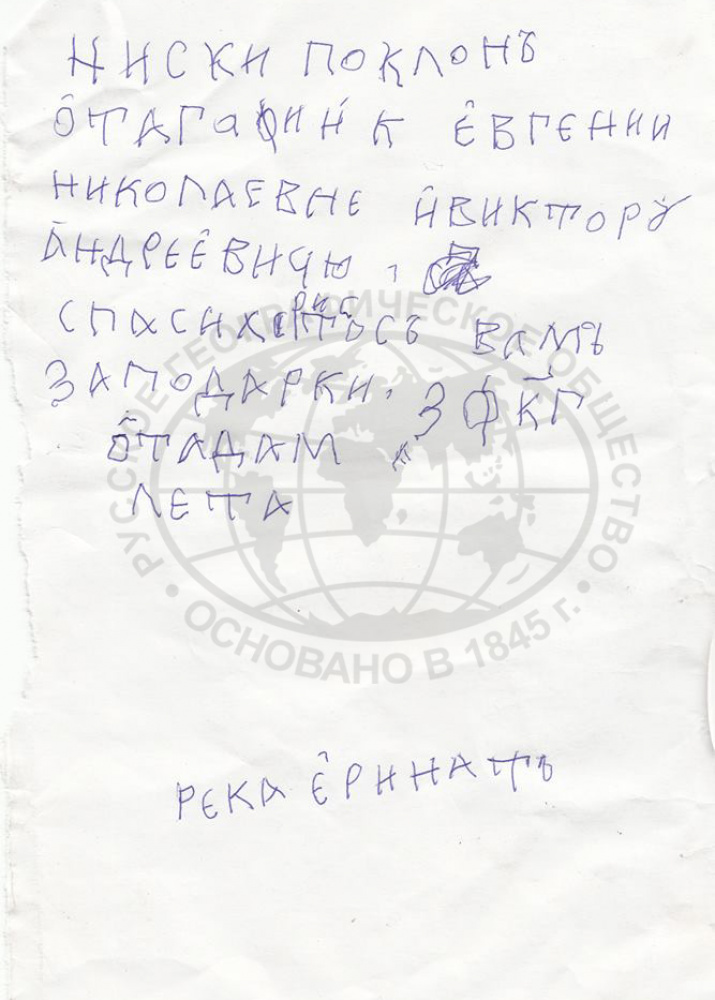 НИСКИ ПОКЛОНЪ
ѾТАГАФИИ К ЕВГЕНИИ
НИКОЛАЕВНЕ ИВИКТОРУ
АНДРЕЕВИЧЮ,
СПАСИХРИСТЪСЪ ВАМЪ
ЗАПОДАРКИ.
ОТАДАМ ЗФКГ
ЛЕТА
РЕКА ЕРИНАТЪ
РУССКОЕ ГЕОГРАФИЧЕСКОЕ ОБЩЕСТВО
ОСНОВАНО В 1845 г.